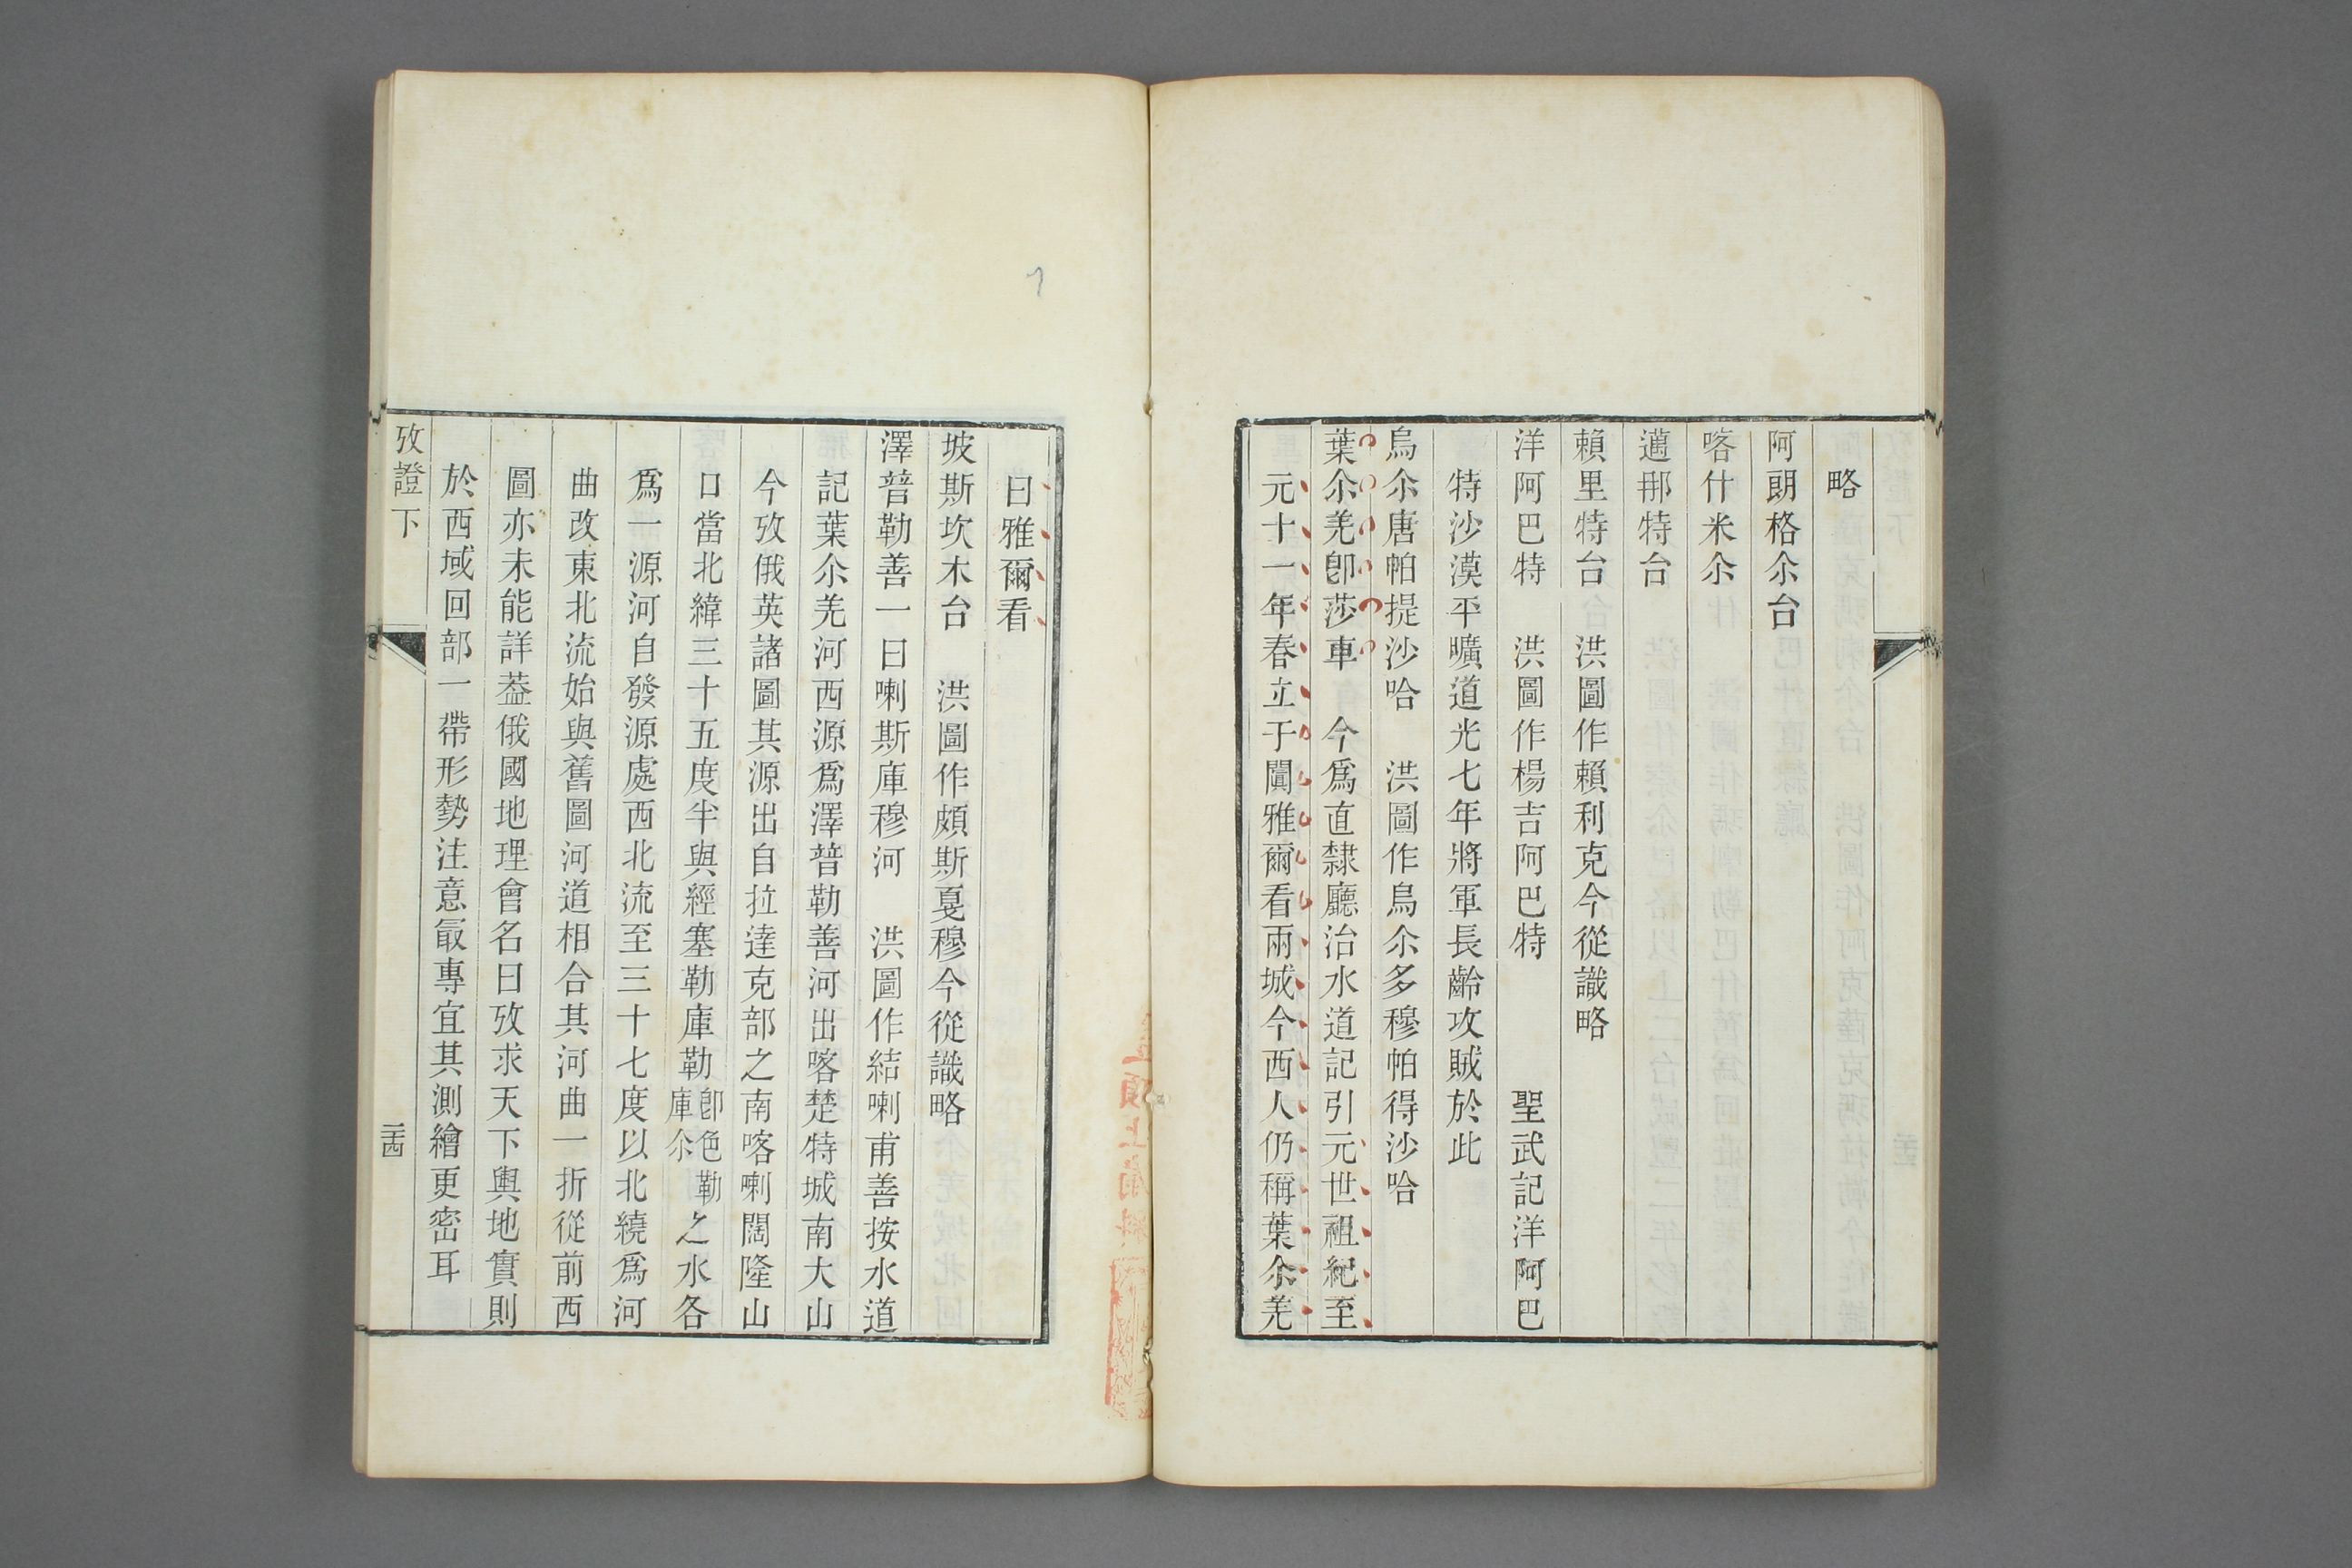 略
阿朗格尒台
喀什米尒
邁那特台
賴里特台　洪圖作賴利克今從識略
洋阿巴特　洪圖作楊吉阿巴特　聖武記洋阿巴
特沙漠平曠道光七年將軍長齡攻賊於此
烏尒唐帕提沙哈　洪圖作烏尒多穆帕得沙哈
葉尒羌卽莎車　今爲直隸廳治水道記引元世祖紀至
元十一年春立于闐雅爾看兩城今西人仍稱葉尒羌
曰雅爾看
坡斯坎木台　洪圖作頗斯戛穆今從識略
澤普勒善一曰喇斯庫穆河　洪圖作結喇甫善按水道
記葉尒羌河西源爲澤普勒善河出喀楚特城南大山
今攷俄英諸圖其源出自拉達克部之南喀喇闊隆山
口當北緯三十五度半與經塞勒庫勒卽色勒庫尒之水各
爲一源河自發源處西北流至三十七度以北繞爲河
曲改東北流始與舊圖河道相合其河曲一折從前西
圖亦未能詳葢俄國地理會名曰攷求天下輿地實則
於西域回部一帶形勢注意最專宜其測繪更密耳
攷證下
二十四